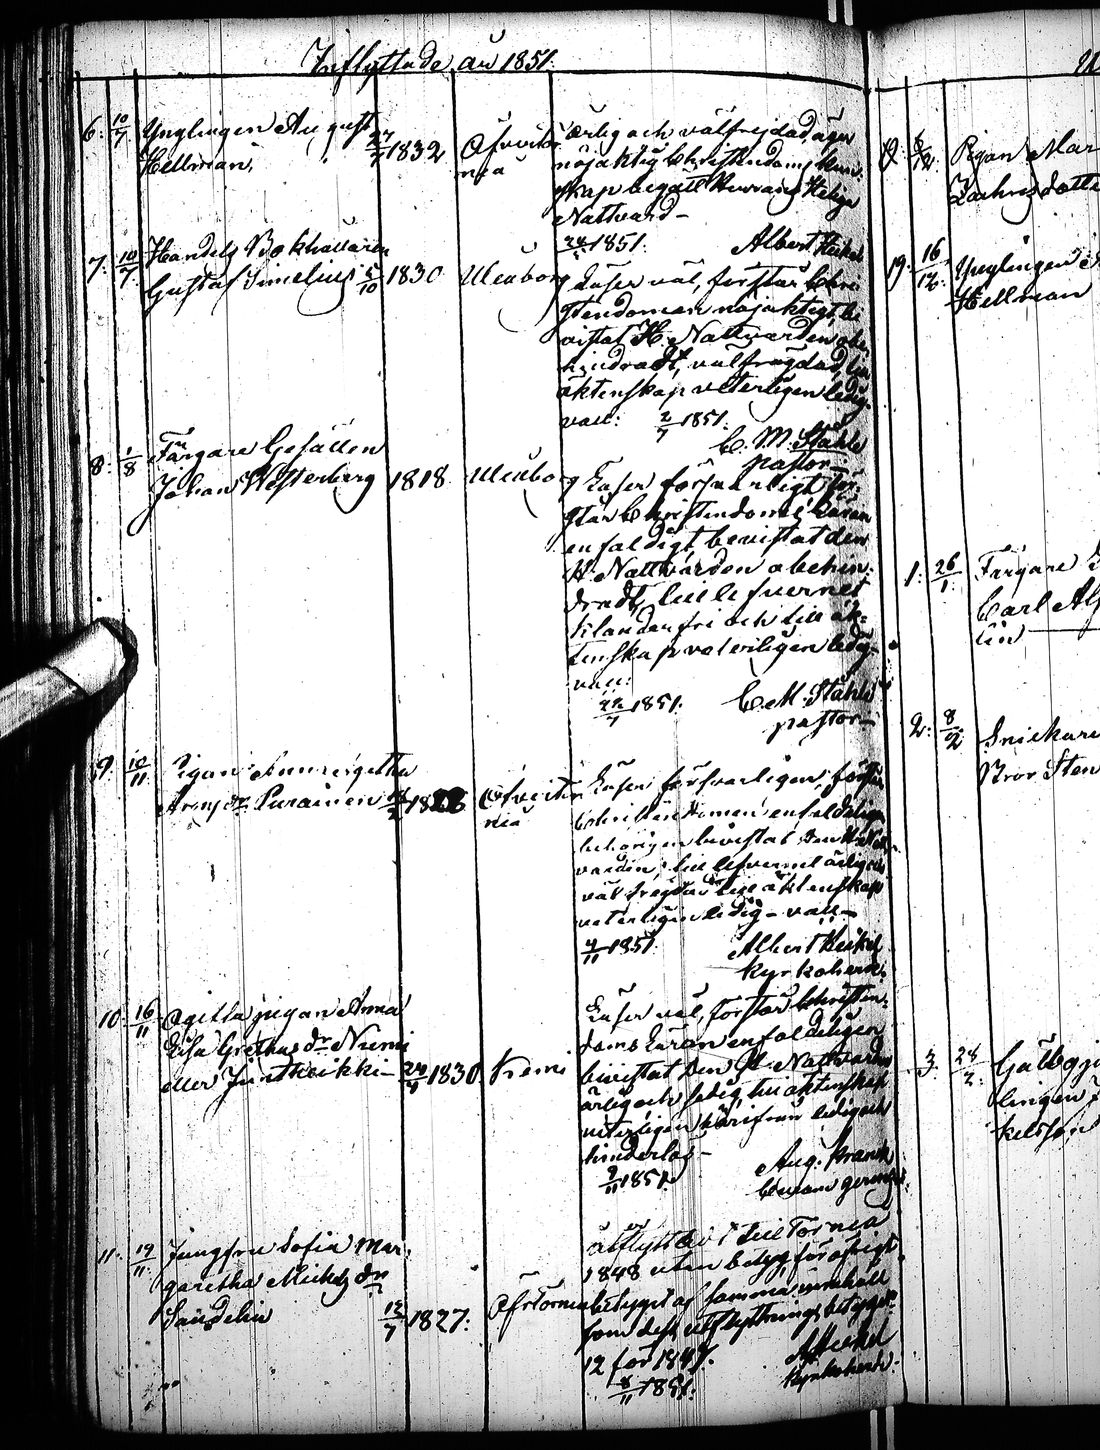 Inflyttade år 1851.
6. 10/7 Ynglingen August
Hellman, 27/7 1832 Öfvertor
nea
ärlig och välfrejdad, äger
nöjaktig Christendoms kun-
skap begått Herrans Helige
Nattvard –
1851. Albert Heikel
7. 10/7 Handels Bokhållaren
Gustaf Simelius 5/10 1830 Uleåborg
Läser väl, förstår Chri
stendomen nöjaktigt, be
vistat H. Nattvarden obe
hindradt, välfrägdad,
äktenskap veterligen ledig.
vall: 2/7 1851.
C. M. Ståhle
pastor
8. 1/8 Färgare Gesällen
Johan Westerberg 1818 Uleåborg
Läser försvarligt, för-
står Christendoms läran
enfaldigt, bevistat den
H. Nattvarden obehin-
dradt, till lefvernet
klanderfri och till äk-
tenskap veterligen ledig-
vall:
22/7 1851. C. M. Ståhle
pastor
9. 10/11 Pigan Anna Greta
Purainen 18 Öfvertor
nea
Läser försvarligen, förstår
Christendomen enfaldeligen
behörigen bevistat den H. Natt
varden, till lefvernet ärlig och
väl frejdad till äktenskap
veterligen ledig – vall –
4/11 1851 Albert Heikel
kyrkoherde
10. 16/11 Ogifta pigan Anna
Lisa Grethas dr Niemi
eller Juntheikki – 24/4 1830. Kemi
Läser väl, förstår Christen-
doms Läran enfaldeligen
bevistat den H. Nattvarden
ärlig och ledig, till äktenskap
veterligen härifrån ledig och
hinderlös –
9/11 1851. Aug: Kranck
11. 19/11 Jungfru Sofia Mar-
garetha Michels dr
Sandelin 12/7 1827: ÖfrTornea
afflyttad till Torneå
1848 utan betyg för öfrigt
betyget af samma innehåll
som dess utflyttnings betyg
12 för 1847.
8/11 1851. A Heikel
Kyrkoherde
Pigan Mar
Zachris dotte
19. 16/12 Ynglingen A
Hellman
1. 26/1. Färgare
Carl Alf
lin
2. 8/2 Snickare
Bror Sten
3. 28/2 Gulbgj
lingen J
kelsson